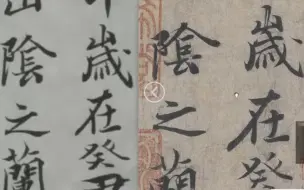 歲在癸丑
山陰之蘭
歲在癸
陰之蘭